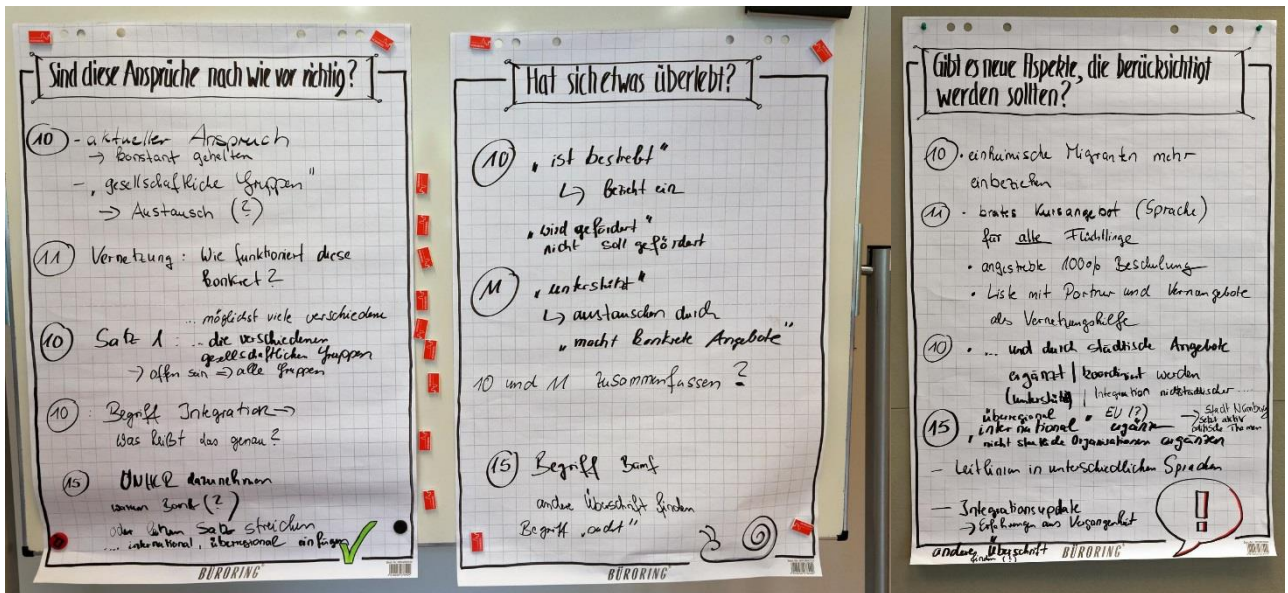 Sind diese Ansprüche nach wie vor richtig?
10 - aktueller Anspruch
→ konstant gehalten
- "gesellschaftliche Gruppen"
→ Austausch (?)
11 Vernetzung: Wie funktioniert diese
konkret?
... möglichst viele verschiedene
10 Satz 1: ... die verschiedenen
gesellschaftlichen Gruppen
→ offen sein ⇒ alle Gruppen
10: Begriff Integration →
Was heißt das genau?
15 UNHCR dazunehmen
warum (?)
oder Satz streichen
... international, überregional einfügen
BÜRORING
Hat sich etwas überlebt?
10 "ist bestrebt"
↳ bezieht ein
"wird gefördert"
nicht soll gefördert
11 "unterstützt"
↳ austauschen durch
"macht konkrete Angebote"
10 und 11 zusammenfassen?
15 Begriff Bamf
andere Überschrift finden
Begriff
BÜRORING
Gibt es neue Aspekte, die berücksichtigt
werden sollten?
10 · einheimische Migranten mehr
einbeziehen
11 · Kursangebot (Sprache)
für alle Flüchtlinge
· angestrebte 100% Beschulung
· Liste mit Partner und
als Vernetzungshilfe
10 · ... und durch städtische Angebote
ergänzt | koordiniert werden
(unterstützt) | Integration
überregional " EU (?) → Stadt Nürnberg
15 "international ergänzen setzt aktiv
politische Themen
nicht staatliche Organisationen ergänzen
- Leitlinien in unterschiedlichen Sprachen
- Integrationsupdate
→ Erfahrungen aus Vergangenheit
andere Überschrift
finden (!!)
BÜRORING
!